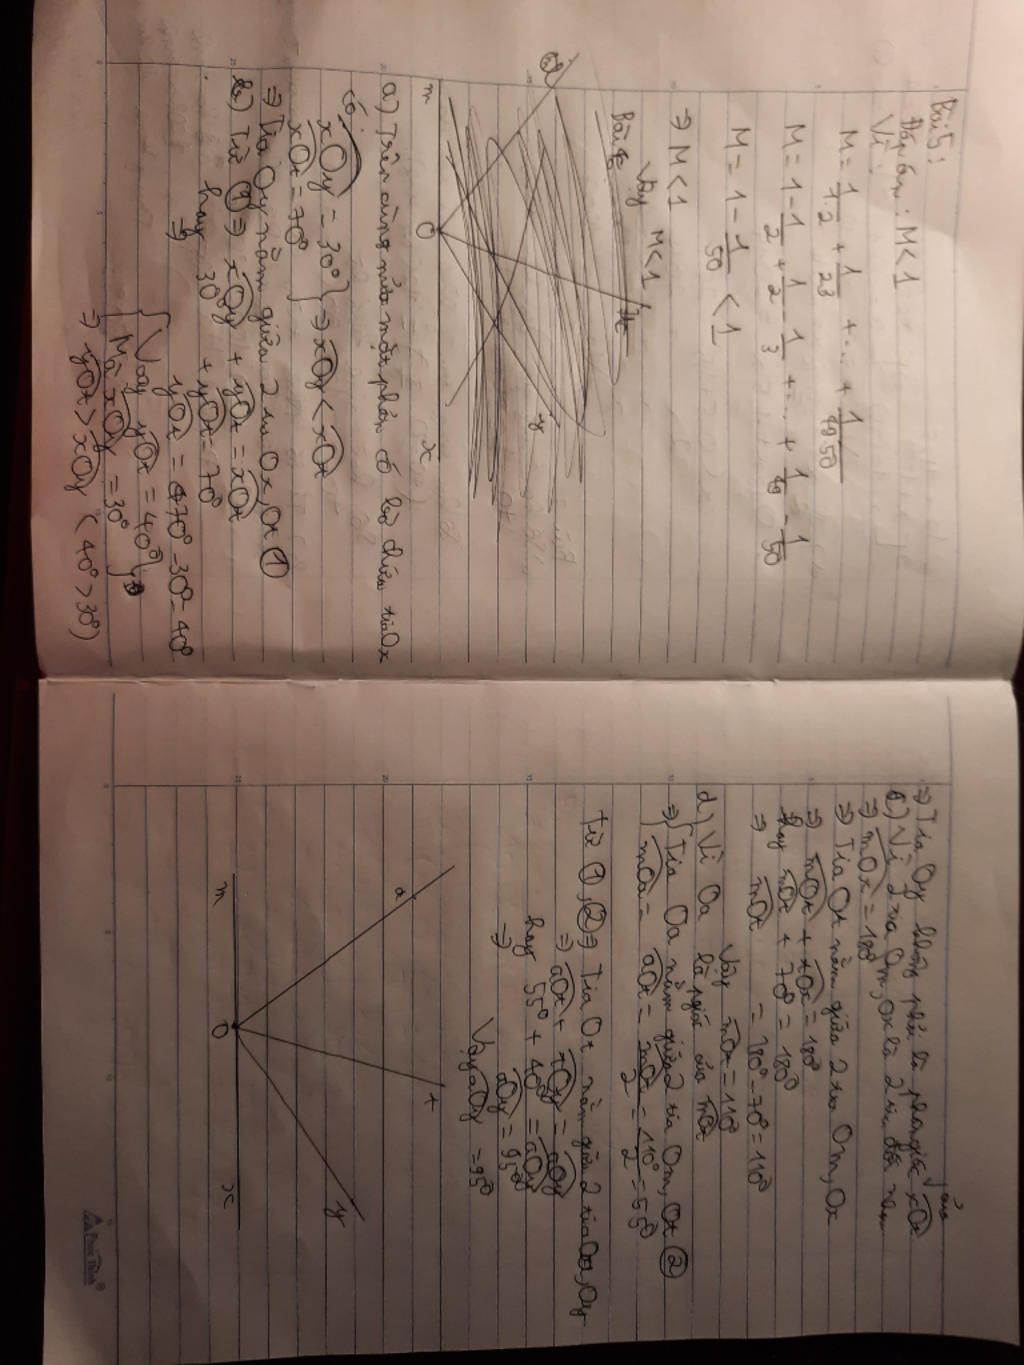 Bài 5:
Đáp án: M < 1
Vì:
M = 1/1.2 + 1/23 + ... + 1/4950
M = 1 - 1/2 + 1/2 - 1/3 + ... + 1/49 - 1/50
M = 1 - 1/50 < 1
⇒ M < 1
Vậy M < 1
Bài
a
t
y
m O x
a) Trên cùng nửa mặt phẳng có bờ chứa tia Ox
có:
xOy = 30°
xOt = 70° } ⇒ xOy < xOt
⇒ Tia Oy nằm giữa 2 tia Ox, Ot ①
b) Từ ① ⇒ xOy + yOt = xOt
hay 30° + yOt = 70°
⇒ yOt = 70° - 30° = 40°
Vậy yOt = 40°
Mà xOy = 30° }
⇒ yOt > xOy (40° > 30°)
⇒ Tia Oy không phải là phân giác của xOt
c) Vì 2 tia Om, Ox là 2 tia đối nhau
⇒ mOx = 180°
⇒ Tia Ot nằm giữa 2 tia Om, Ox
⇒ mOt + tOx = 180°
hay mOt + 70° = 180°
⇒ mOt = 180° - 70° = 110°
Vậy mOt = 110°
d) Vì Oa là pgiác của mOt
⇒ Tia Oa nằm giữa 2 tia Om, Ot ②
mOa = aOt = mOt/2 = 110°/2 = 55°
Từ ①, ② ⇒ Tia Ot nằm giữa 2 tia Oa, Oy
⇒ aOt + tOy = aOy
hay 55° + 40° = aOy
⇒ aOy = 95°
Vậy aOy = 95°
a
t
y
m O x